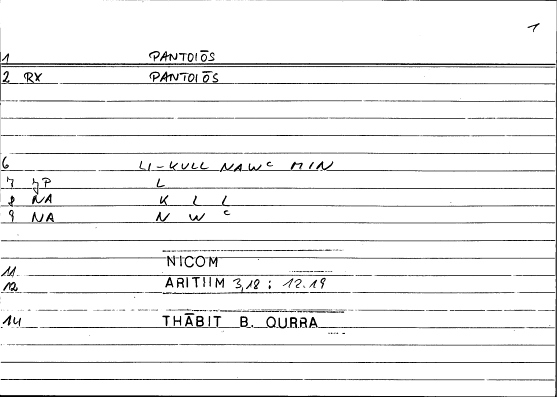 1
1 PANTOIŌS
2 RX PANTOIŌS
6 LI-KULL NAWᶜ MIN
7 JP L
8 NA K L L
9 NA N W ᶜ
11 NICOM
12 ARITIIM 3,18 ; 12.19
14 THĀBIT B. QURRA